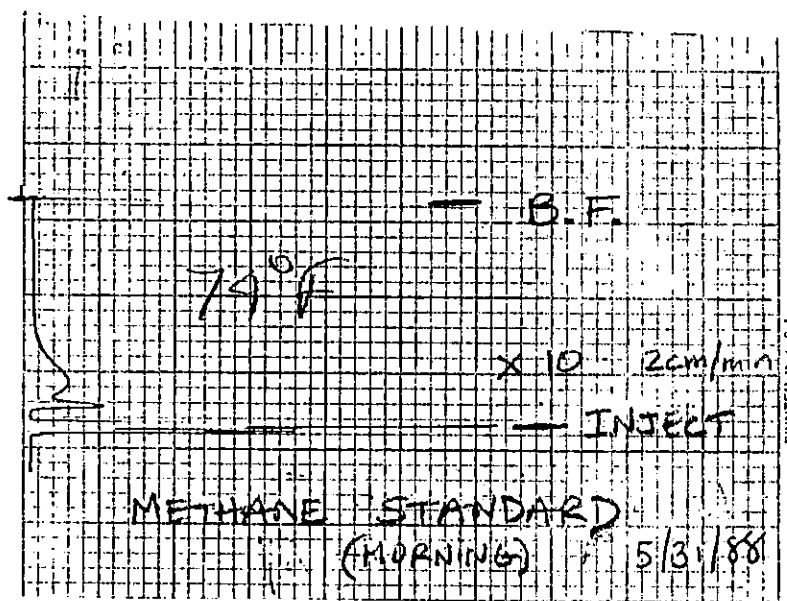 B.F.
74°F
X 10 2cm/min
INJECT
METHANE STANDARD
(MORNING) 5/31/88